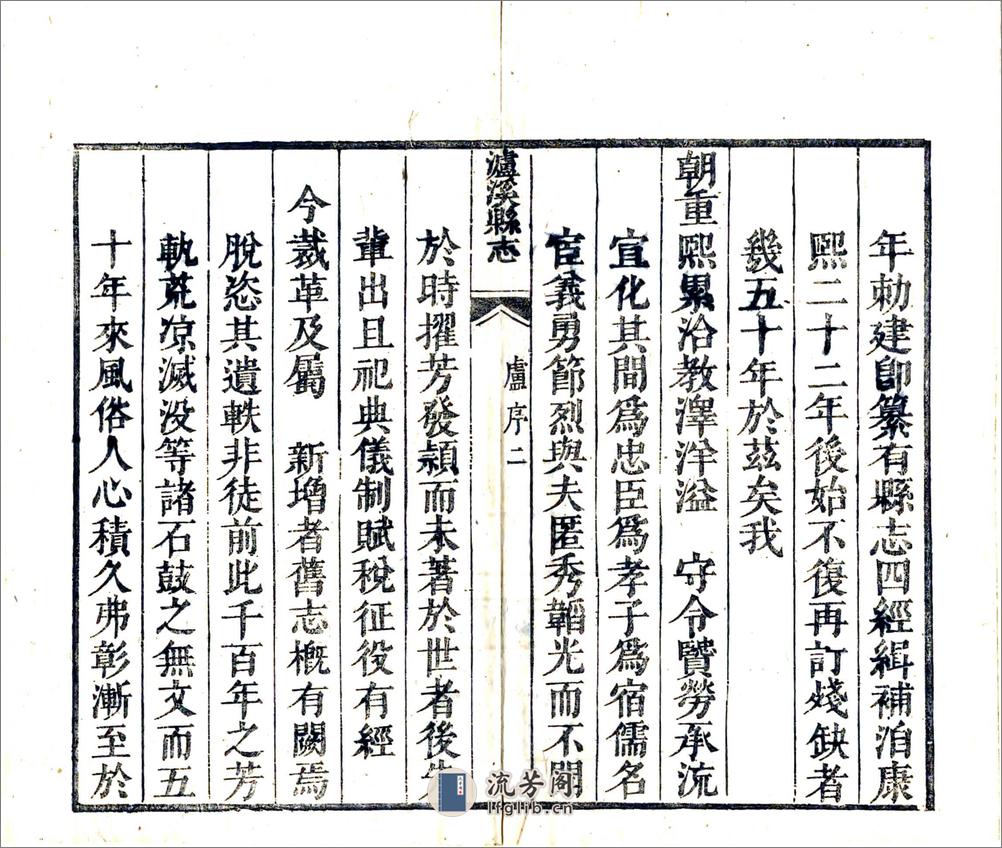 年勅建卽纂有縣志四經緝補洎康
熙二十二年後始不復再訂殘缺者
幾五十年於茲矣我
朝重熙累洽教澤洋溢　守令賢勞承流
宣化其間爲忠臣爲孝子爲宿儒名
宦義勇節烈與夫匿秀韜光而不聞
瀘溪縣志
盧序二
於時擢芳發穎而未著於世者後先
輩出且祀典儀制賦稅征役有經
今裁革及屬　新增者舊志槪有闕焉
脫恣其遺軼非徒前此千百年之芳
軌荒凉滅没等諸石鼓之無文而五
十年來風俗人心積久弗彰漸至於
流芳閣
lfglib.cn